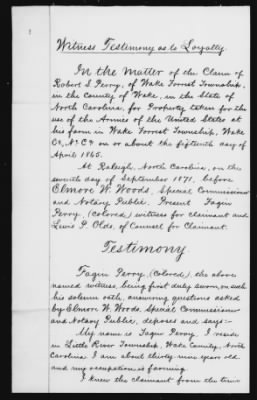 Witness Testimony as to Loyalty.
In the Matter of the Claim of
Robert S. Perry, of Wake Forrest Township,
in the County of Wake, in the State of
North Carolina, for Property taken for the
use of the Armies of the United States at
his farm in Wake Forrest Township, Wake
Co, N. C. on or about the fifteenth day of
April 1865.
At Raleigh, North Carolina, on the
seventh day of September 1871, before
Elmore W. Woods, Special Commissioner
and Notary Public. Present
Perry (Colored) witness for claimant and
Lewis P. Olds, of Counsel for Claimant.
Testimony
Perry, (Colored), the above
named witness, being first duly sworn, on such
his solemn oath, answering questions asked
by Elmore W. Woods, Special Commissioner
and Notary Public, deposes and says:-
My name is Perry. I reside
in Little River Township, Wake County, North
Carolina. I am about thirty nine years old
and my occupation is farming
I knew the claimant from the time